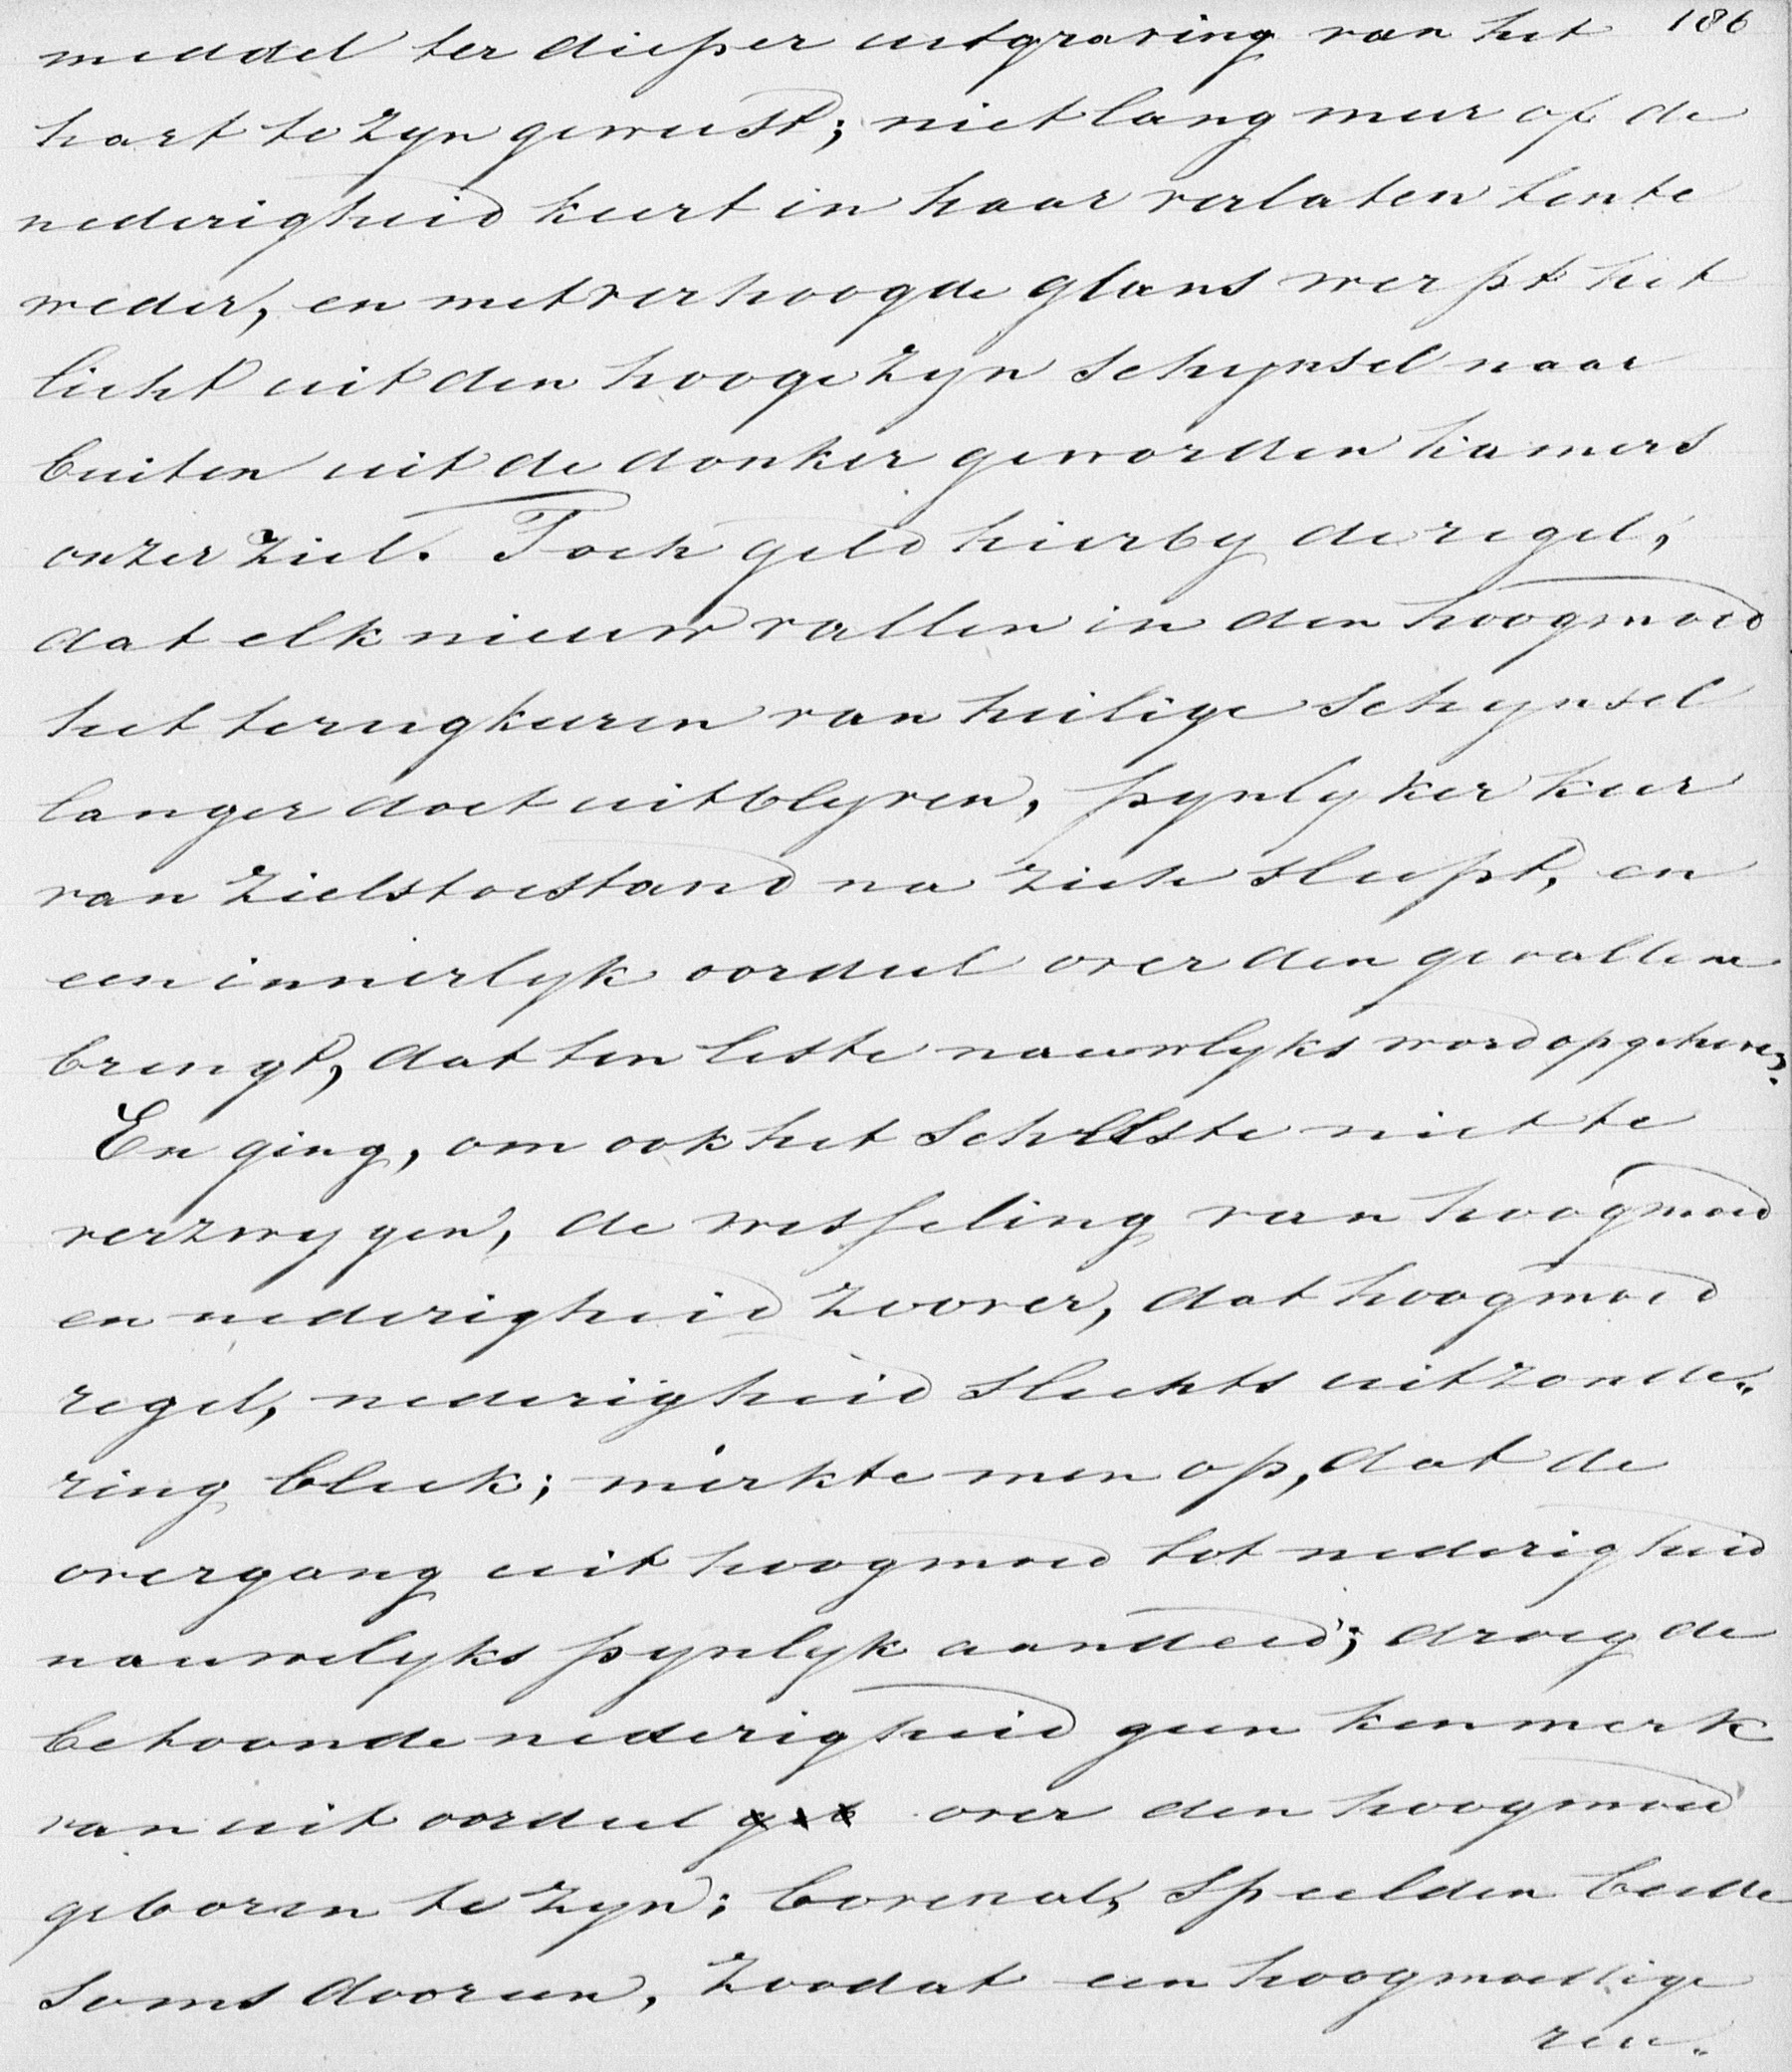 186
middel ter dieper uitgraving van het
hart te zyn geweest; niet lang meer of de
nederigheid keert in haar verlaten tente
weder, en met verhoogde glans werpt het
licht uit den hooge zyn schynsel naar
buiten uit de donker geworden kamers
onzer ziel. Toch geld hierby de regel,
dat elk nieuw vallen in den hoogmoed
het terugkeeren van heilige schynsel
langer doet uitblyven, pynlyker keer
van zielstoestand na zich sleept, en
een innerlyk oordeel over den gevallene
brengt, dat ten leste nauwlyks word opgeheven.
En ging, om ook het schrilste niet te
verzwygen, de wisseling van hoogmoed
en nederigheid zoover, dat hoogmoed
regel, nederigheid slechts uitzonde„
ring bleek; merkte men op, dat de
overgang uit hoogmoed tot nederigheid
nauwelyks pynlyk aandeed; droeg de
betoonde nederigheid geen kenmerk
van uit oordeel over den hoogmoed
geboren te zyn; bovenal, speelden beide
soms dooreen, zoodat een hoogmoedige